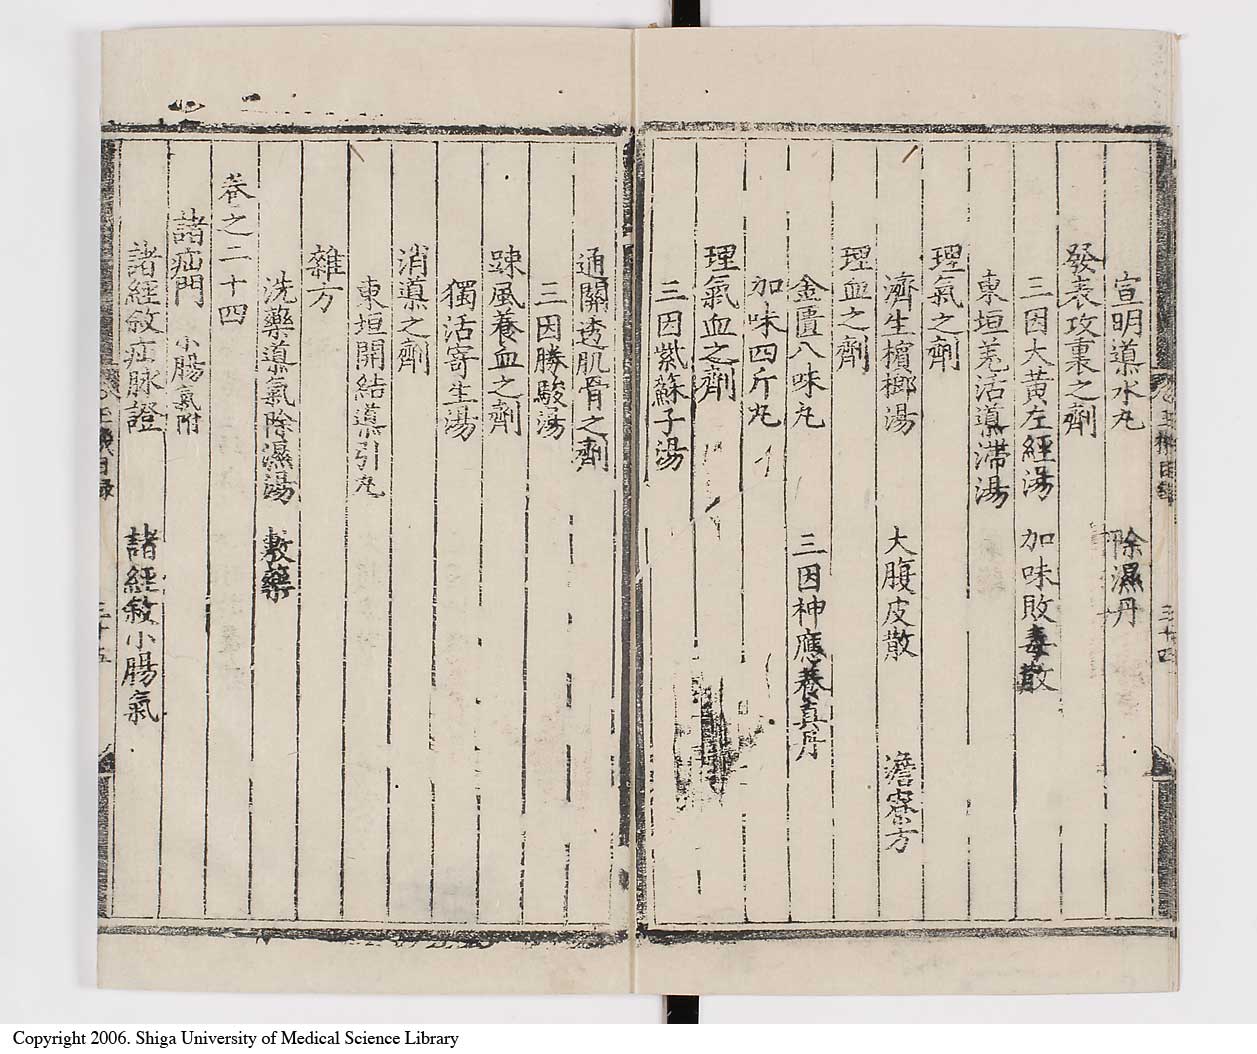 宣明導水丸 除濕丹
發表攻裏之劑
三因大黃左經湯 加味敗毒散
東垣羗活導滯湯
理氣之劑
濟生檳榔湯 大腹皮散 澹寮方
理血之劑
金匱八味丸 三因神應養真丹
加味四斤丸
理氣血之劑
三因紫蘇子湯
通關透肌骨之劑
三因勝駿湯
踈風養血之劑
獨活寄生湯
消導之劑
東垣開結導引丸
雜方
洗藥導氣除濕湯 敷藥
卷之二十四
諸疝門 小腸氣附
諸經敘疝脉證 諸經敘小腸氣
三十四
三十五
Copyright 2006. Shiga University of Medical Science Library